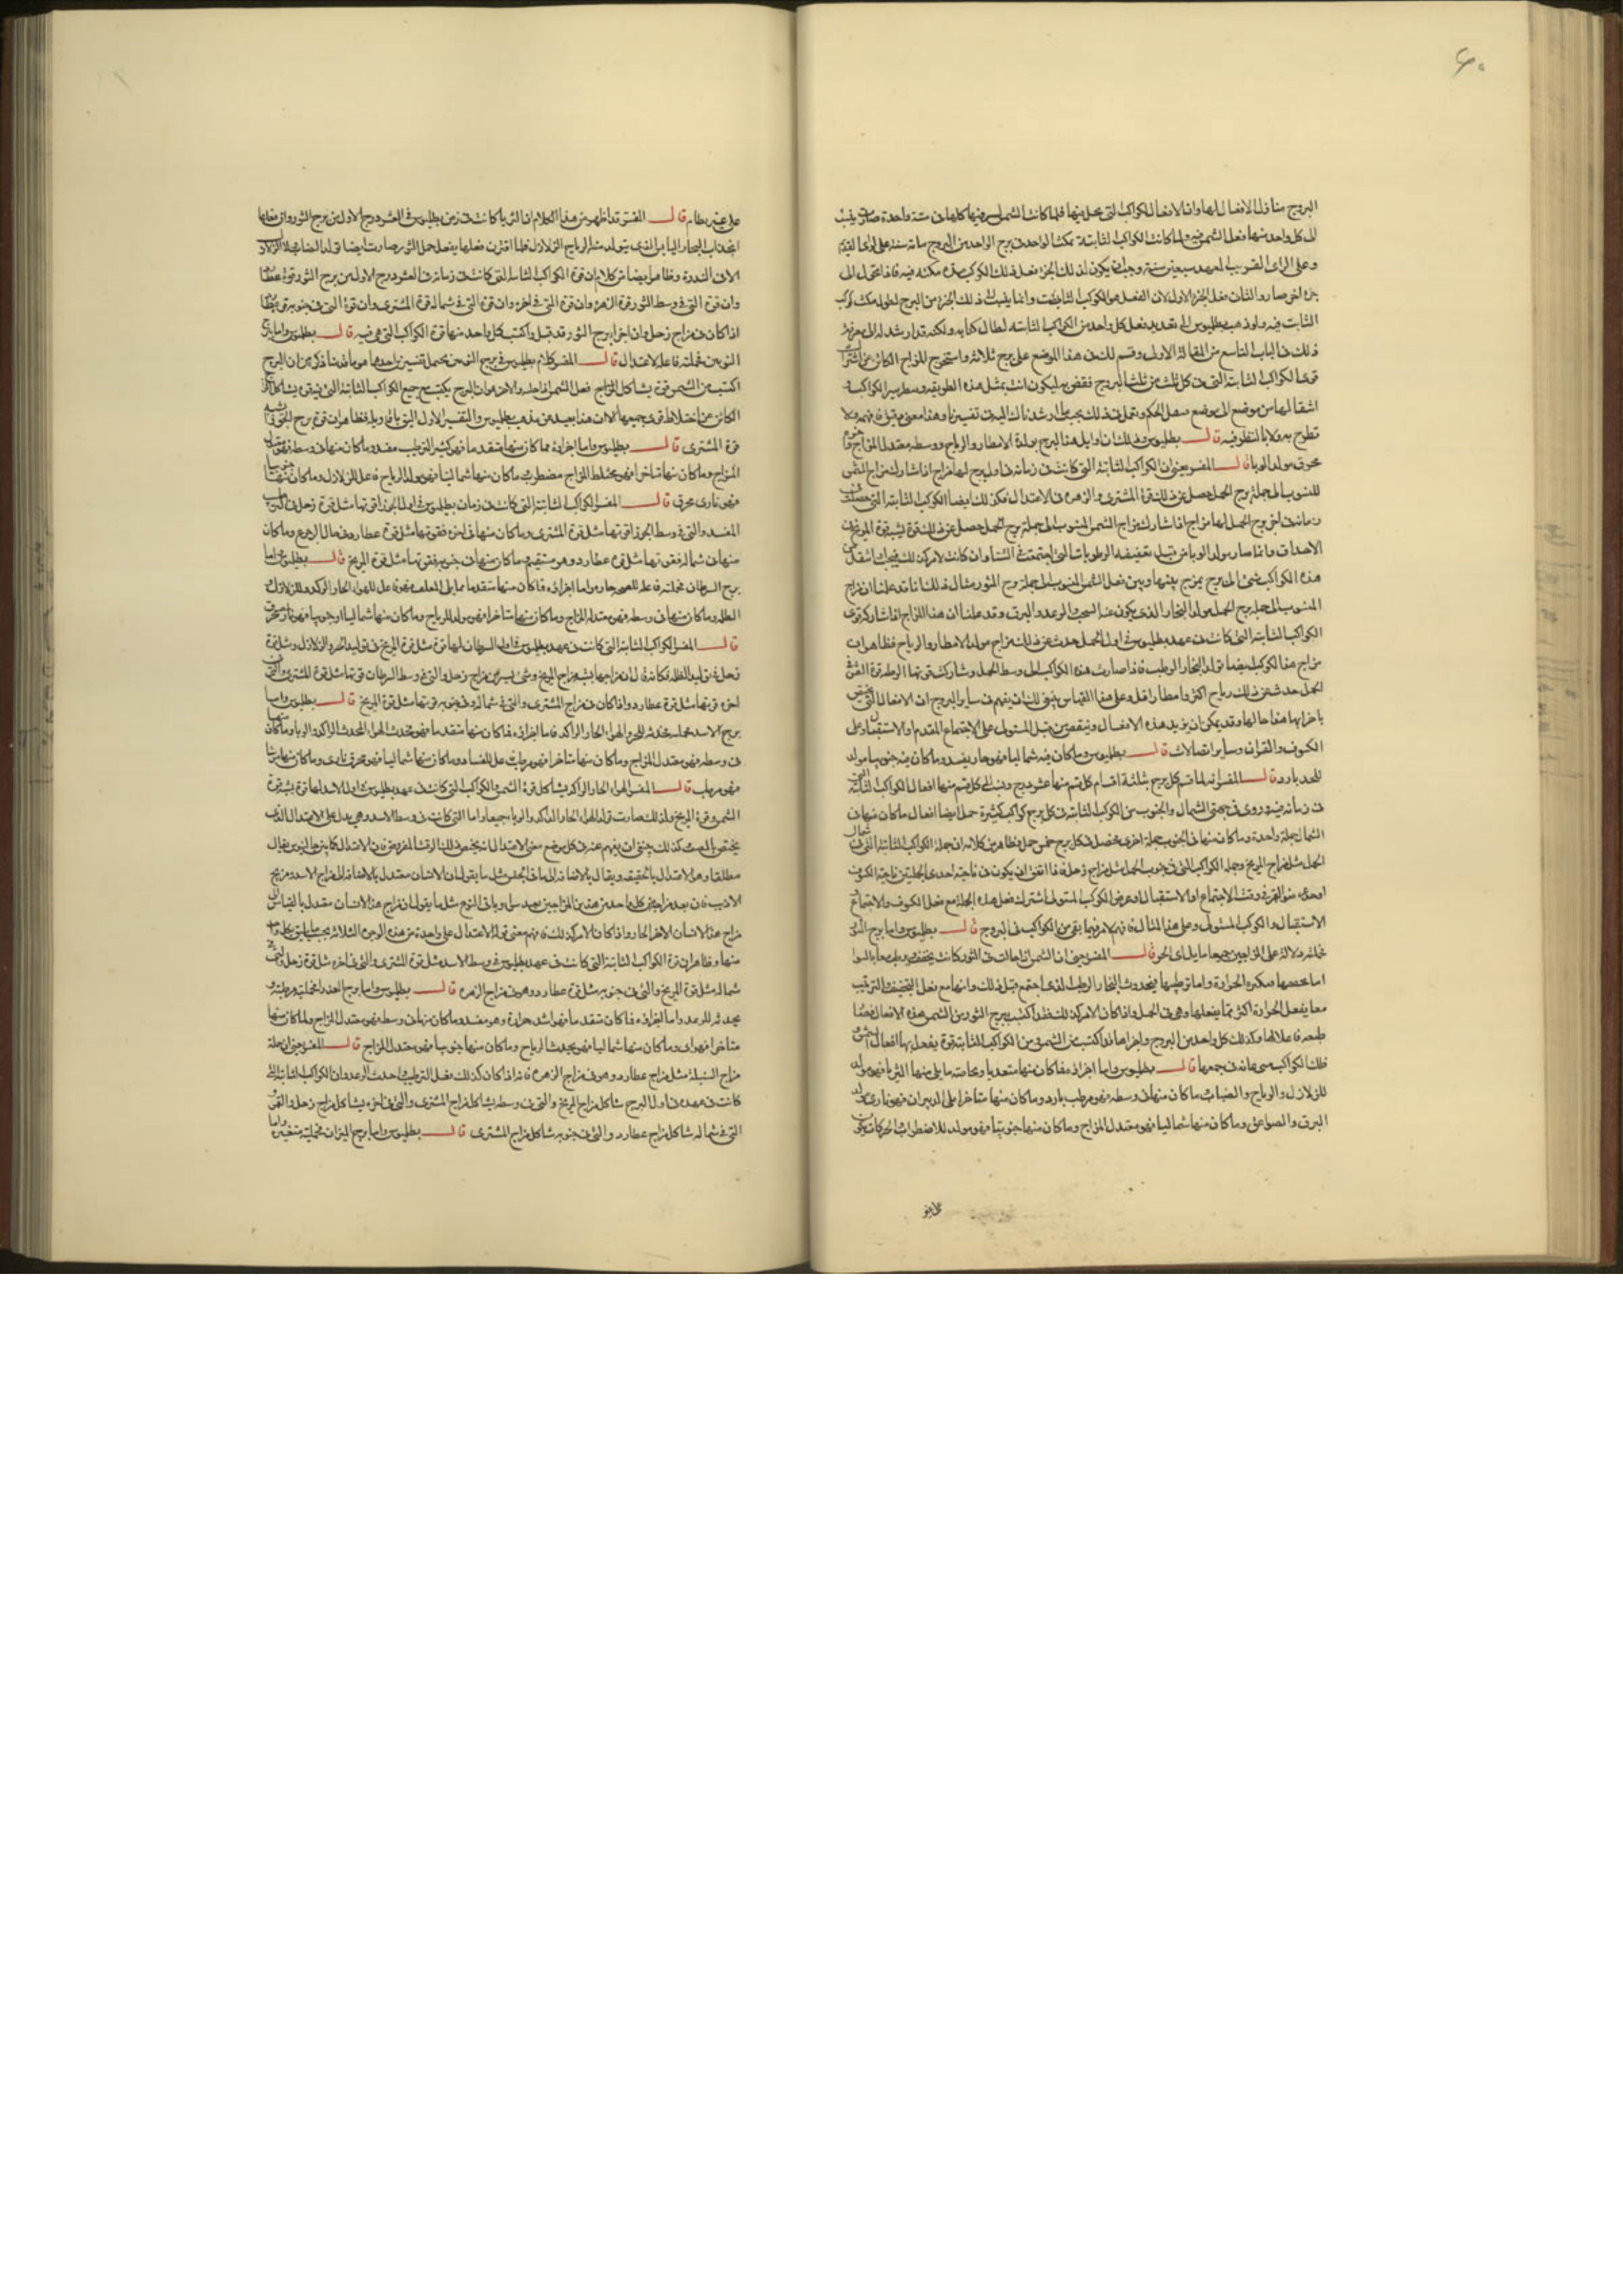 ٦٠
البروج منازل الافعال لها وانما الافعال للكواكب التى تحل فيها فلما كانت الشمس تسير فيها كلها فى سنة واحدة صار ينسب
الى كل واحد منها فعل الشمس فيه ولما كانت الكواكب الثابتة تمكث الواحد فى برج الواحد من البروج مائة سنة على الراى القديم
وعلى الراى القريب العهد سبعين سنة وجب ان يكون لذلك الجزء فعل ذلك الكوكب مدة مكثه فيه فاذا تحول الى
جزء اخر صار ذو الشان فعل الجزء الاول لان الفعل هو للكوكب الثابت وانما ينسب الى ذلك الجزء من البرج لطول مكث كوكب
الثابت فيه ولو ذهب بطليموس الى تعديد فعل كل واحد من الكواكب الثابته لطال كتابه ولكنه قد ارشد الى معرفة
ذلك فى الباب التاسع من المقالة الاولى وقسم لك فى هذا الموضع على برج ثلاثة واستخرج المزاج الكائن عن اشتراك
قوى الكواكب الثابتة التى فى كل ثلث من ثلث البروج فقف به ليكون انت بمثل هذه الطريقه وسط سير الكواكب
انتقالها من موضع الى موضع سهل الحكم وتمثل فى ذلك بحسب ما ارشدناك اليه فى تفسيرنا وهذا معنى دقيق فافهم ولا
تطرح به فلا بالنظر فيه قال بطليموس وذلك ان اوايل هذا البرج مولدة الامطار والرياح ووسطه معتدل المزاج
محرق مولد الوبا قال المفسر يعنى ان الكواكب الثابتة التى كانت فى زمانه فى اول برج لها مزاج اذا شارك مزاج الشمس
المنسوب الى جملة برج الحمل حصل عن ذلك قوة المشترى والزهره فى الاعتدال فكذلك ايضا الكواكب الثابته التى
زمانه فى اخر برج الحمل لها مزاج اذا شارك مزاج الشمس المنسوب الى جملة برج الحمل حصل عن ذلك قوة تشبه قوة المريخ
الاحداث وانما صار مولد الوبا من قبل تعفينه الرطوبات التى اجتمعت فى الشتا وان كانت الامر كذلك فيجب انتقال
هذه الكواكب شئ الى برج يمزج بينها وبين فعل الشمس المنسوب الى جملة برج الثور مثال ذلك انا قد علمنا ان مزاج
المنسوب الى جملة برج الحمل مولد البخار الذى يكون عنه السحب والرعد والبرق وقد علمنا ان هذا المزاج اذا شاركه قوى
الكواكب الثابتة التى كانت فى عهد بطليموس فى اول الحمل حدث عن ذلك مزاج مولد الامطار والرياح فظاهر ان
مزاج هذا الكوكب ايضا تولد البخار الرطب فاذا صارت هذه الكواكب الى وسط الحمل وشاركت قوتها الرطبة قوة الشمس
الحمل حدث عن ذلك رياح اكثر وامطار اقل وعلى هذا القياس ينبغى لك ان تفهم فى ساير البروج ان الافعال التى تختص
باجزائها هذا حالها وقد يمكن ان يزيد هذه الافعال وينقص من قبل المستولى على الاجتماع المتقدم او الاستقبال وعلى
الكسوف والقران وساير اتصالات قال بطليموس وما كان منه شماليا فهو حار يفسد وما كان منه جنوبيا مولد
للجليد بارد قال المفسر انه لما قسم كل برج بثلثة اقسام كل قسم منها عشر درج ونسب الى كل قسم منها افعال الكواكب الثابتة
فى زمانه فيه وروى فى جهتى الشمال والجنوب من الكواكب الثابته فى كل برج كواكب كثيرة جعل ايضا افعال ما كان منها فى
الشمال جملة واحدة وما كان منها فى الجنوب جملة اخرى فحصل فى كل برج خمس جمل فظاهر من كلامه ان جملة الكواكب الثابتة التى فى شمال
الحمل مثل مزاج المريخ وجملة الكواكب التى فى جنوب الحمل مثل مزاج زحل فاذا اتفق ان يكون فى ناحية احدى الجملتين ناحية الكسوف
او جزء ضوء القمر فى وقت الاجتماع او الاستقبال او عرض الكوكب المتولى اشترك فعل هذه الجملة مع فعل الكسوف والاجتماع
الاستقبال والكوكب المستولى وعلى هذا المثال فافهم الامر فيما بقى من الكواكب فى البروج قال بطليموس واما برج الثور
فجملته دالة على المزاجين جميعا مايل الى الحر قال المفسر يعنى ان الشمس اذا حلت فى الثور كانت يخفف ويرطب معا بالسوا
اما تجفيفها فبكثرة الحرارة واما ترطيبها فبحدوث البخار الرطب الذى اجتمع قبل ذلك وانها مع فعل التجفيف والترطيب
معا يفعل الحرارة اكثر مما يفعلها وهى فى الحمل واذا كان الامر كذلك فقد اكتسب برج الثور من الشمس هذه الافعال
طبيعة فاعلة لها وكذلك كل واحد من البروج واجزاها قد اكتسب من الشمس ومن الكواكب الثابتة قوة يفعل بها افعال الشمس
تلك الكواكب قال بطليموس واما اجزاؤه فما كان منها متقدما وخاصة ما يلى منها الثريا فهو مولد
للزلازل والرياح والضباب وما كان منها فى وسطه فهو مرطب بارد وما كان منها متاخرا يلى الدبران فهو نارى مولد
البرق والصواعق وما كان منها شماليا فهو معتدل المزاج وما كان منها جنوبيا فهو مولد للاضطراب الحركات يكون
على غير
على غير نظام قال المفسر قد اظهر من هذا الكلام ان الثريا كانت فى زمن بطليموس فى العشر درج الاول من برج الثور وان فعلها
انجذاب البخار اليابس الذى يتولد منه الرياح الزلازل فلما اقترن فعلها بفعل جمل الثور صارت ايضا تولد الضباب
الان الندوة وظاهر ايضا من كلامه ان قوة الكواكب الثابته التى كانت فى زمانه فى العشر درج الاول من برج الثور قوة عطارد
وان قوة التى فى وسط الثور قوة الزهره وان قوة التى فى اخره وان قوة التى فى شماله قوة المشترى وان قوة التى فى جنوبه قوة عطارد
اذا كان فى مزاج زحل وان اجزا برج الثور قد قبل واكتسب كل واحد منها قوة الكواكب التى هى فيه قال بطليموس واما برج
التومين فجملته فاعلة الاعتدال قال المفسر كلام بطليموس فى برج التومين يحتمل تفسيرين احدهما هو ما قدمنا ذكره من ان البرج
اكتسب من الشمس قوة يشاكل المزاج فعل الشمس اذا حله والاخر هو ان البرج يكتسب جميع الكواكب الثابتة التى فيه قوى يشاكل المزاج
الكائن عن اختلاط قوى جميعها الا ان هذا بعيد عن مذهب بطليموس والتفسير الاول اليق باقاويله فظاهر ان قوة برج الجوزا شبيه
قوة المشترى قال بطليموس واما اجزاؤه فما كان منها متقدما فهو كثير الترطيب مفسد وما كان منها فى وسطه فهو معتدل
المزاج وما كان منها متاخرا فهو مختلط المزاج مضطرب وما كان منها شماليا فهو مولد للرياح فاعل للزلازل وما كان منها جنوبيا
فهو نارى محرق قال المفسر الكواكب الثابتة التى كانت فى زمان بطليموس فى اول الجوزا قوتها مثل قوة زحل
المفسد والتى فى وسط الجوزا قوتها مثل قوة المشترى وما كان منها فى اخره فقوتها مثل قوة عطارد فى حال الرجوع وما كان
منها فى شماله فقوتها مثل قوة عطارد وهو مستقيم وما كان منها فى جنوبه فقوتها مثل قوة المريخ قال بطليموس واما
برج السرطان فجملته فاعلة للصحو حارة واما اجزاؤه فما كان منها متقدما مما يلى المعلف فهو فاعل للهوا الحار الراكد وللزلازل
الظلمه وما كان منها فى وسطه فهو معتدل المزاج وما كان منها متاخرا فهو مولد للرياح وما كان منها شماليا او جنوبيا فهو نارى محرق
قال المفسر الكواكب الثابتة التى كانت فى عهد بطليموس فى اول السرطان لها قوة مثل قوة المريخ فى توليد الحر والزلازل ومثل قوة
زحل فى توليد الظلمه فكانه قال ان مزاجها يشبه مزاج المريخ وشئ يسير من مزاج زحل والتى فى وسط السرطان قوتها مثل قوة المشترى والتى فى
اخره قوتها مثل قوة عطارد واذا كان فى مزاج المشترى والتى فى شماله وفى جنوبه قوتها مثل قوة المريخ قال بطليموس واما
برج الاسد فجملته محدثة للحر والهوا الحار الراكد فاما اجزاؤه فما كان منها متقدما فهو محدث الهوا المحدث الراكد والوبا وما كان منها
فى وسطه فهو معتدل المزاج وما كان منها متاخرا فهو مرطب وعلى الفساد وما كان منها شماليا فهو محرق نارى وما كان منها جنوبيا
فهو مرطب قال المفسر الهوا الحار الراكد يشاكل قوة الشمس والكواكب التى كانت فى عهد بطليموس فى اول الاسد لها قوة يشبه قوة
الشمس وقوة المريخ ولذلك صارت تولد الهوا الحار الراكد والوبا جميعا واما التى كانت فى وسط الاسد وهى يدل على الاعتدال الذى
يختص بالبعث كذلك ينبغى ان يفهم عنه فى كل موضع معنى الاعتدال انه يختص ذلك الوقت المفروض فان الاعتدال يقال
مطلقا وهو الاعتدال بالحقيقه ويقال بالاضافة الى ما فى الجنس مثل ما يقول ان الانسان معتدل بالاضافه الى مزاج الاسد
مزاج هذا الانسان الاخر الحار واذا كان الامر كذلك فافهم معنى قوله الاعتدال على واحدة من هذه الوجوه الثلاثه بحسب ما يليق بكل واحد
منها وظاهر ان قوة الكواكب الثابتة التى كانت فى عهد بطليموس فى وسط الاسد مثل قوة المشترى والتى فى اخره مثل قوة زحل والتى فى
شماله مثل قوة المريخ والتى فى جنوبه مثل قوة عطارد وهو فى مزاج الزهره قال بطليموس واما برج العذرا فجملته مرطبة
يحدث الرعد واما اجزاؤه فما كان متقدما فهو اشد حرارة وهو مفسد وما كان منها فى وسطه فهو معتدل المزاج وما كان منها
متاخرا فهو وما كان منها شماليا فهو يحدث الرياح وما كان منها جنوبيا فهو معتدل المزاج قال المفسر يعنى ان جملة
مزاج السنبلة مثل مزاج عطارد وهو فى مزاج الزهره فاذا كان كذلك فعل الترطيب واحدث الرعد وان الكواكب الثابته التى
كانت فى عهده فى اول البرج يشاكل مزاج المريخ والتى فى وسطه يشاكل مزاج المشترى والتى فى اخره يشاكل مزاج زحل والقمر
التى فى شماله يشاكل مزاج عطارد والتى فى جنوبه يشاكل مزاج المشترى قال بطليموس واما برج الميزان فجملته متغيرة واما